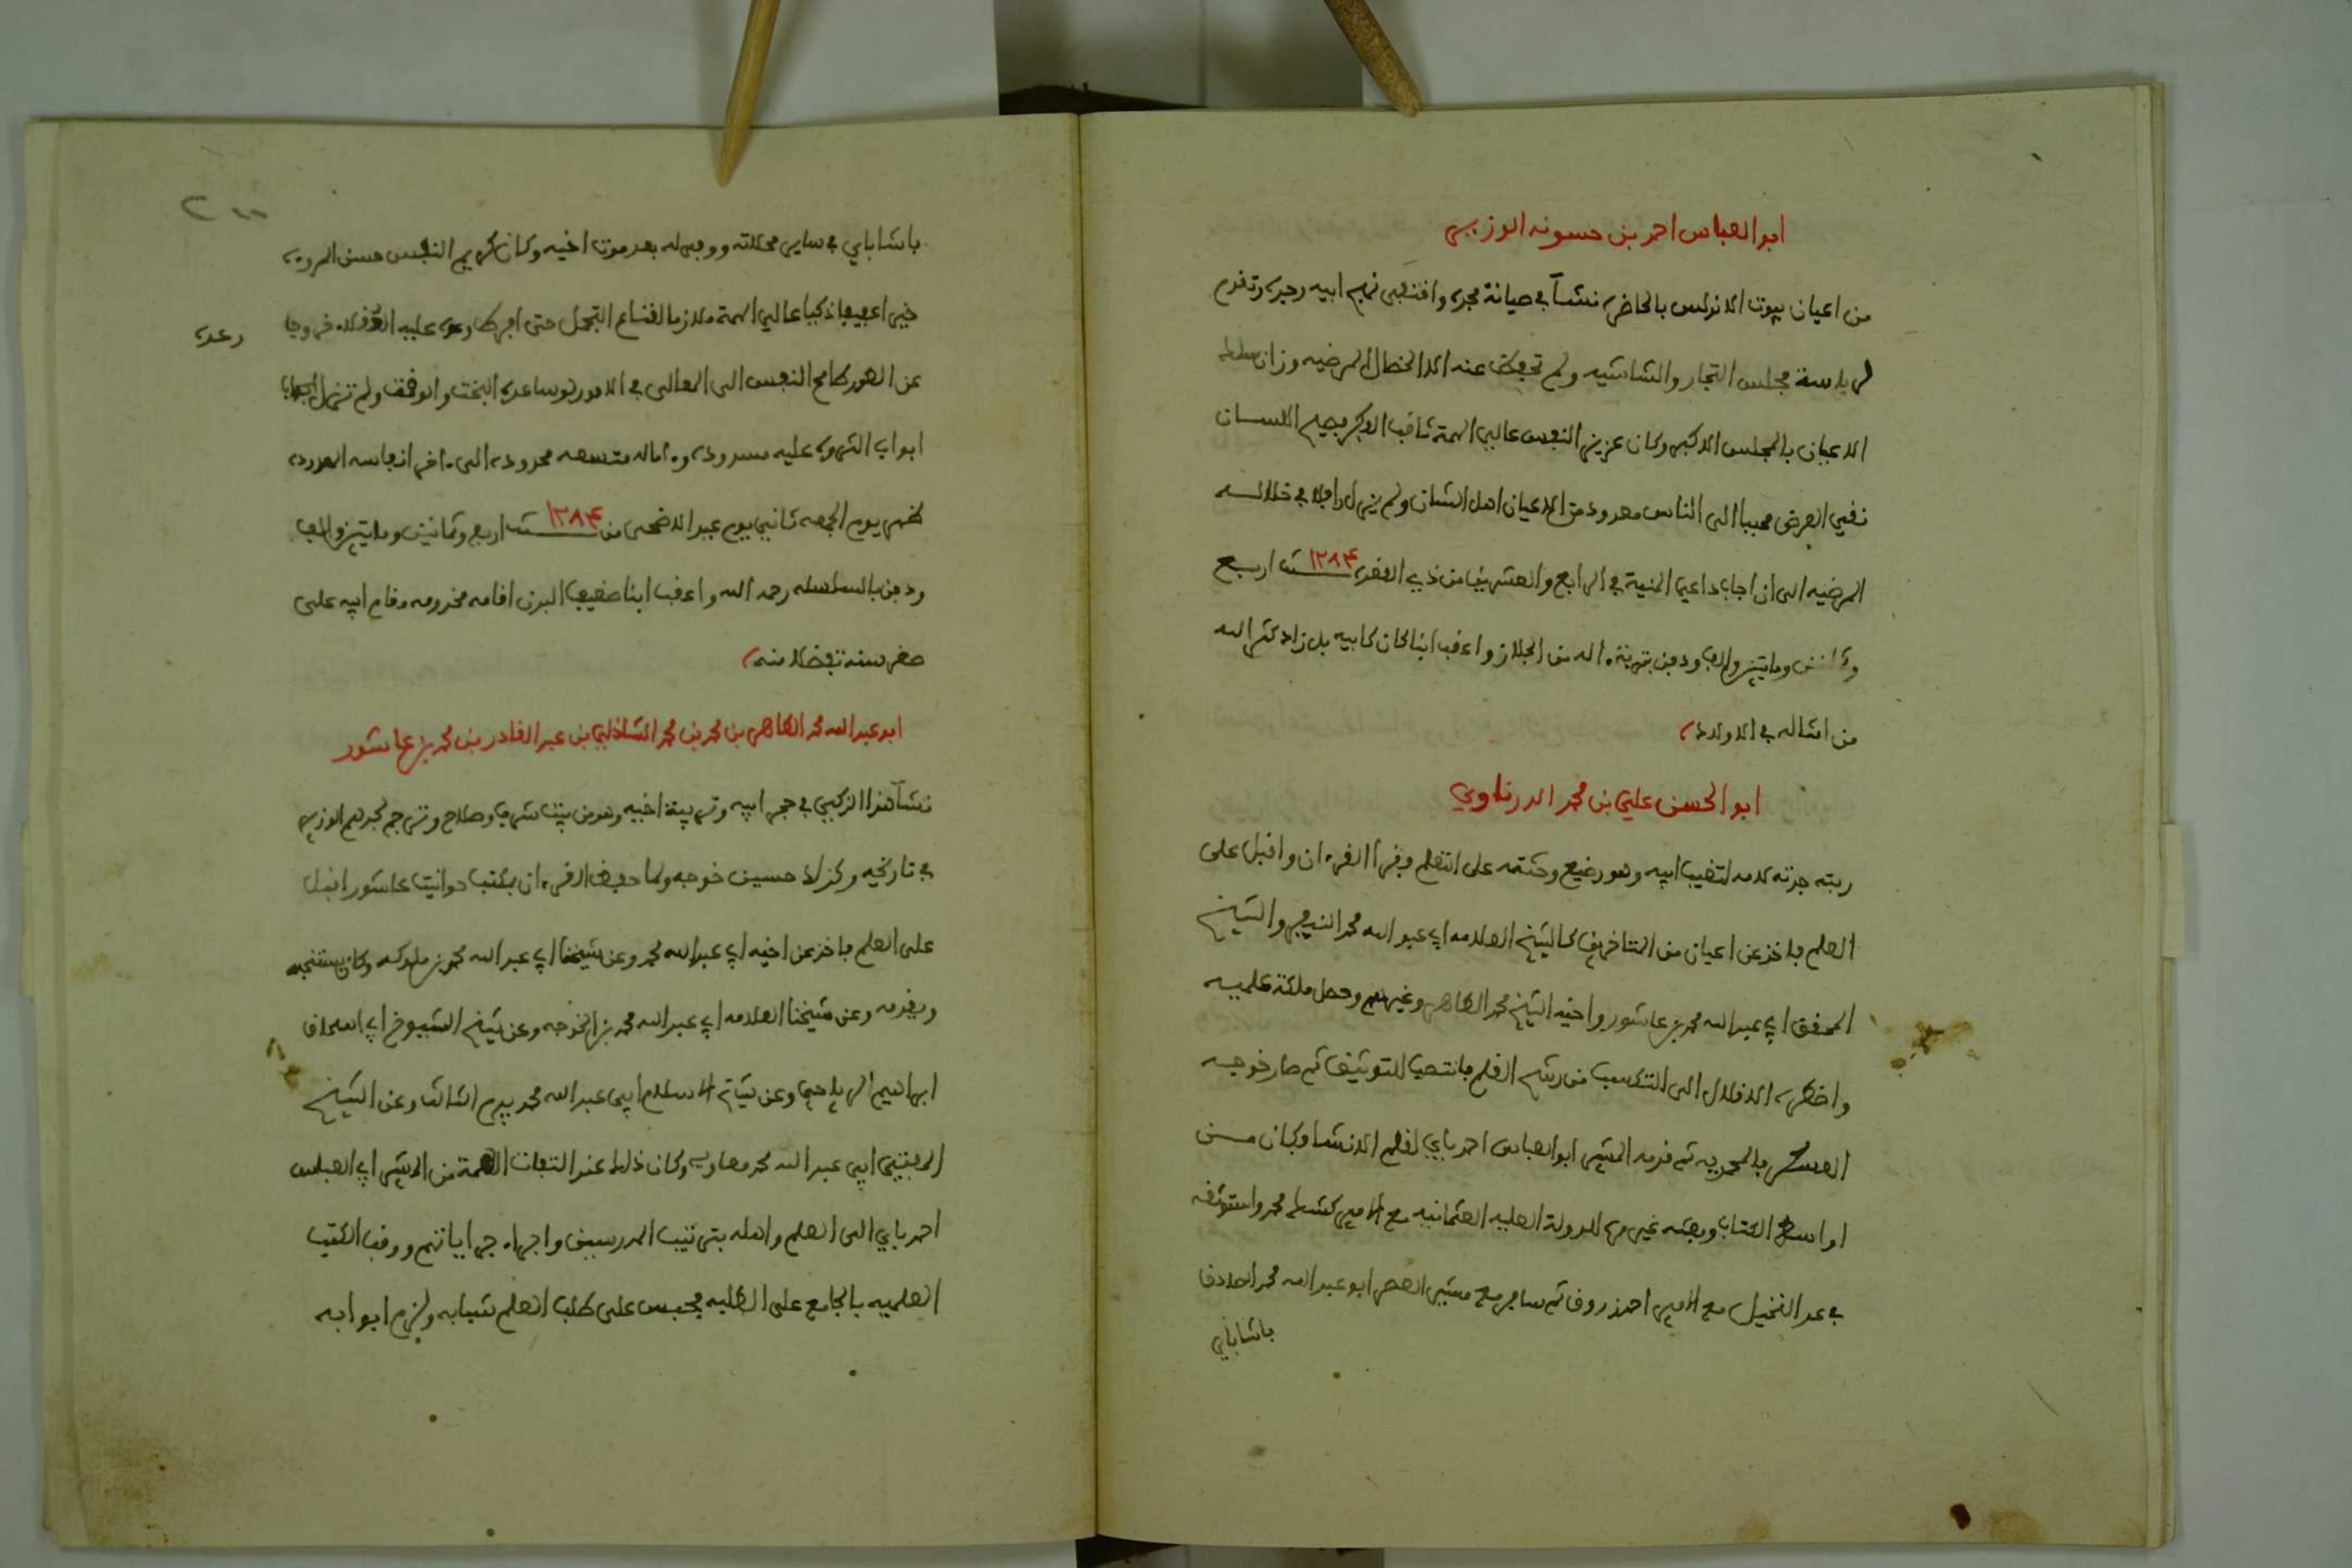 ابو العباس احمد بن حسونه الوزير
من اعيان بيوت الاندلس بالحاضرة نشأ في صيانة مجده واقتفى نهج ابيه وجده وتقدم
لرياسة مجلس التجار والشاشيه ولم تحفظ عنه الا الخصال المرضيه وزان
الاعيان بالمجلس الاكبر وكان عزيز النفس عالي الهمة ثاقب الفكر فصيح اللسان
نقي العرض محببا الى الناس معدودا من الاعيان اهل الشان ولم يزل رافلا في خلاله
المرضيه الى ان اجاب داعي المنية في الرابع والعشرين من ذي القعدة سنة ١٢٨٤ اربع
وثمانين ومايتين والف ودفن بتربة اله من الجلاز واعقب ابنا كان كابيه بل زاد كثر الله
من امثاله في الاولاد
ابو الحسن علي بن محمد الدرناوي
ربته جدته لامه لتغيب ابيه وهو رضيع وحثته على التعلم فقرأ القرءان واقبل على
العلم فاخذ عن اعيان من المتاخرين كالشيخ العلامه ابي عبد الله محمد النيفر والشيخ
المحقق ابي عبد الله محمد بن عاشور واخيه الشيخ محمد الطاهر وغيرهم وحصل ملكة علميه
واضطره الاقلال الى التكسب من رشح القلم فانتصب للتوثيق ثم صار خوجه
العسكر بالمحمديه ثم قدمه المشير ابو العباس احمد باي لقلم الانشا وكان من
اواسط الكتاب وبعثه غير مرة للدولة العليه العثمانيه مع الامير كشك محمد واستوثقه
في عد النخيل مع الامير احمد زروق ثم سافر مع مشير العصر ابو عبد الله محمد الصادق
باشا باي
٢٠٠
باشا باي في ساير محلاته ووجهه له بعد موت اخيه وكان كريم النفس حسن المروءه
خيرا عفيفا ذكيا عالي الهمة ملازما لقناع التجمل حتى افرط
وعده
عن الطور طامح النفس الى المعالي في الامور لو ساعده البخت والوقت ولم تزل
ابواب الثروه عليه مسدوده وءاماله متسعه ممدوده الى ءاخر انفاسه المعدوده
ظهر يوم الجمعه ثاني يوم عيد الاضحى من سنة ١٢٨٤ اربع وثمانين ومايتين والف
ودفن بالسلسله رحمه الله واعقب ابنا ضعيف البدن اقامه مخدومه مقام ابيه على
صغر سنه تفضلا منه
ابو عبد الله محمد الطاهر بن محمد بن محمد الشاذلي بن عبد القادر بن محمد بن عاشور
نشأ هذا الزكي في حجر ابيه وتربية اخيه وهو من بيت شرف وصلاح وترجم لجدهم الوزير
في تاريخه وكذلك حسين خوجه ولما حفظ القرءان بمكتب حوانيت عاشور اقبل
على العلم فاخذ عن اخيه ابي عبد الله محمد وعن شيخنا ابي عبد الله محمد بن ملوكه وكان يستنجبه
ويقدمه وعن شيخنا العلامه ابي عبد الله محمد بن الخوجه وعن شيخ الشيوخ ابي اسحاق
ابراهيم الرياحي وعن شيخ الاسلام ابي عبد الله محمد بيرم الثالث وعن الشيخ
المفتي ابي عبد الله محمد معاويه وكان ذلك عند التفات الهمة من المشير ابي العباس
احمد باي الى العلم واهله بترتيب المدرسين واجراء جراياتهم ووقف الكتب
العلميه بالجامع على الطلبه فحبس على طلب العلم شبابه ولزم ابوابه